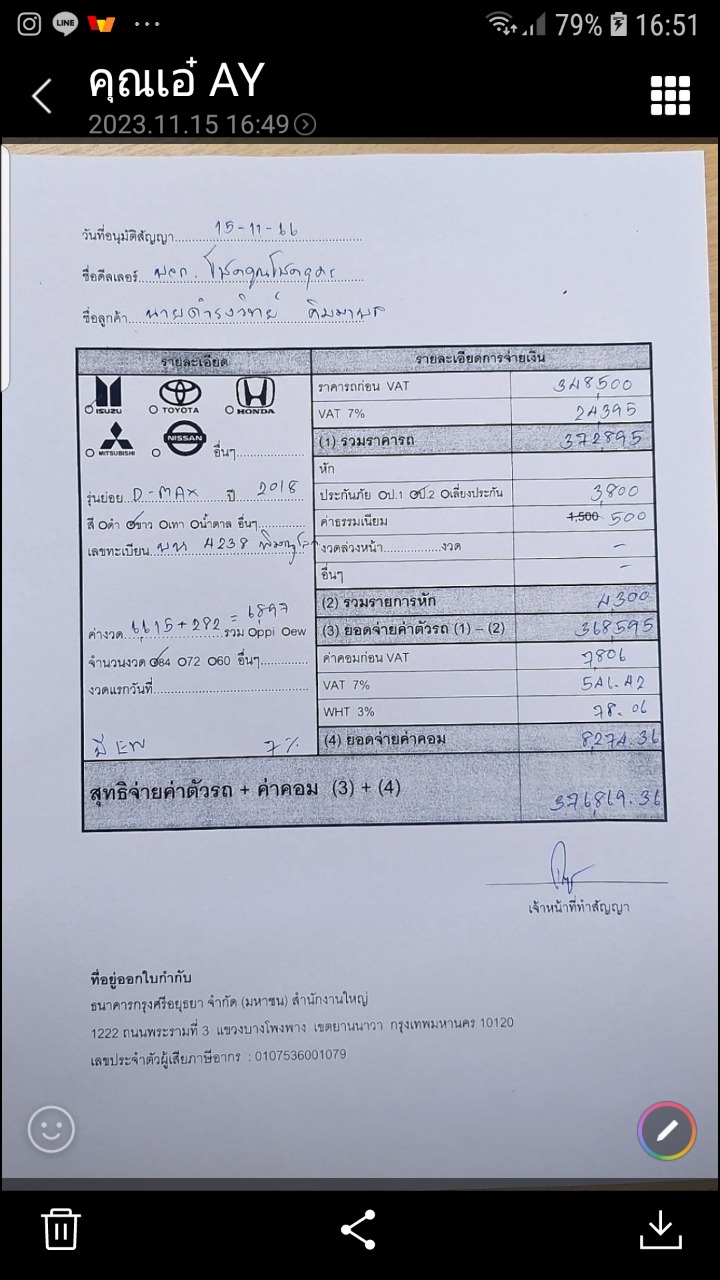 LINE 79% 16:51
คุณเอ๋ AY
2023.11.15 16:49
วันที่อนุมัติสัญญา 15-11-66
ชื่อดีลเลอร์
ชื่อลูกค้า นายดำรงวิทย์
รายละเอียด
รายละเอียดการจ่ายเงิน
ISUZU TOYOTA HONDA
MITSUBISHI NISSAN อื่นๆ
รุ่นย่อย D-MAX ปี 2018
สี ดำ ขาว เทา น้ำตาล อื่นๆ
เลขทะเบียน 4238 พิษณุโลก
ค่างวด 6615+282 = 6897 รวม ppi ew
จำนวนงวด 84 72 60 อื่นๆ
งวดแรกวันที่
มี EW 7%
ราคารถก่อน VAT 348,500
VAT 7% 24395
(1) รวมราคารถ 372895
หัก
ประกันภัย ป.1 ป.2 เลี่ยงประกัน 3,800
ค่าธรรมเนียม 1,500 500
งวดล่วงหน้า.................งวด -
อื่นๆ -
(2) รวมรายการหัก 4,300
(3) ยอดจ่ายค่าตัวรถ (1) – (2) 368,595
ค่าคอมก่อน VAT 7806
VAT 7% 546.42
WHT 3% 78.06
(4) ยอดจ่ายค่าคอม 8,274.36
สุทธิจ่ายค่าตัวรถ + ค่าคอม (3) + (4) 376,869.36
เจ้าหน้าที่ทำสัญญา
ที่อยู่ออกใบกำกับ
ธนาคารกรุงศรีอยุธยา จำกัด (มหาชน) สำนักงานใหญ่
1222 ถนนพระรามที่ 3 แขวงบางโพงพาง เขตยานนาวา กรุงเทพมหานคร 10120
เลขประจำตัวผู้เสียภาษีอากร : 0107536001079